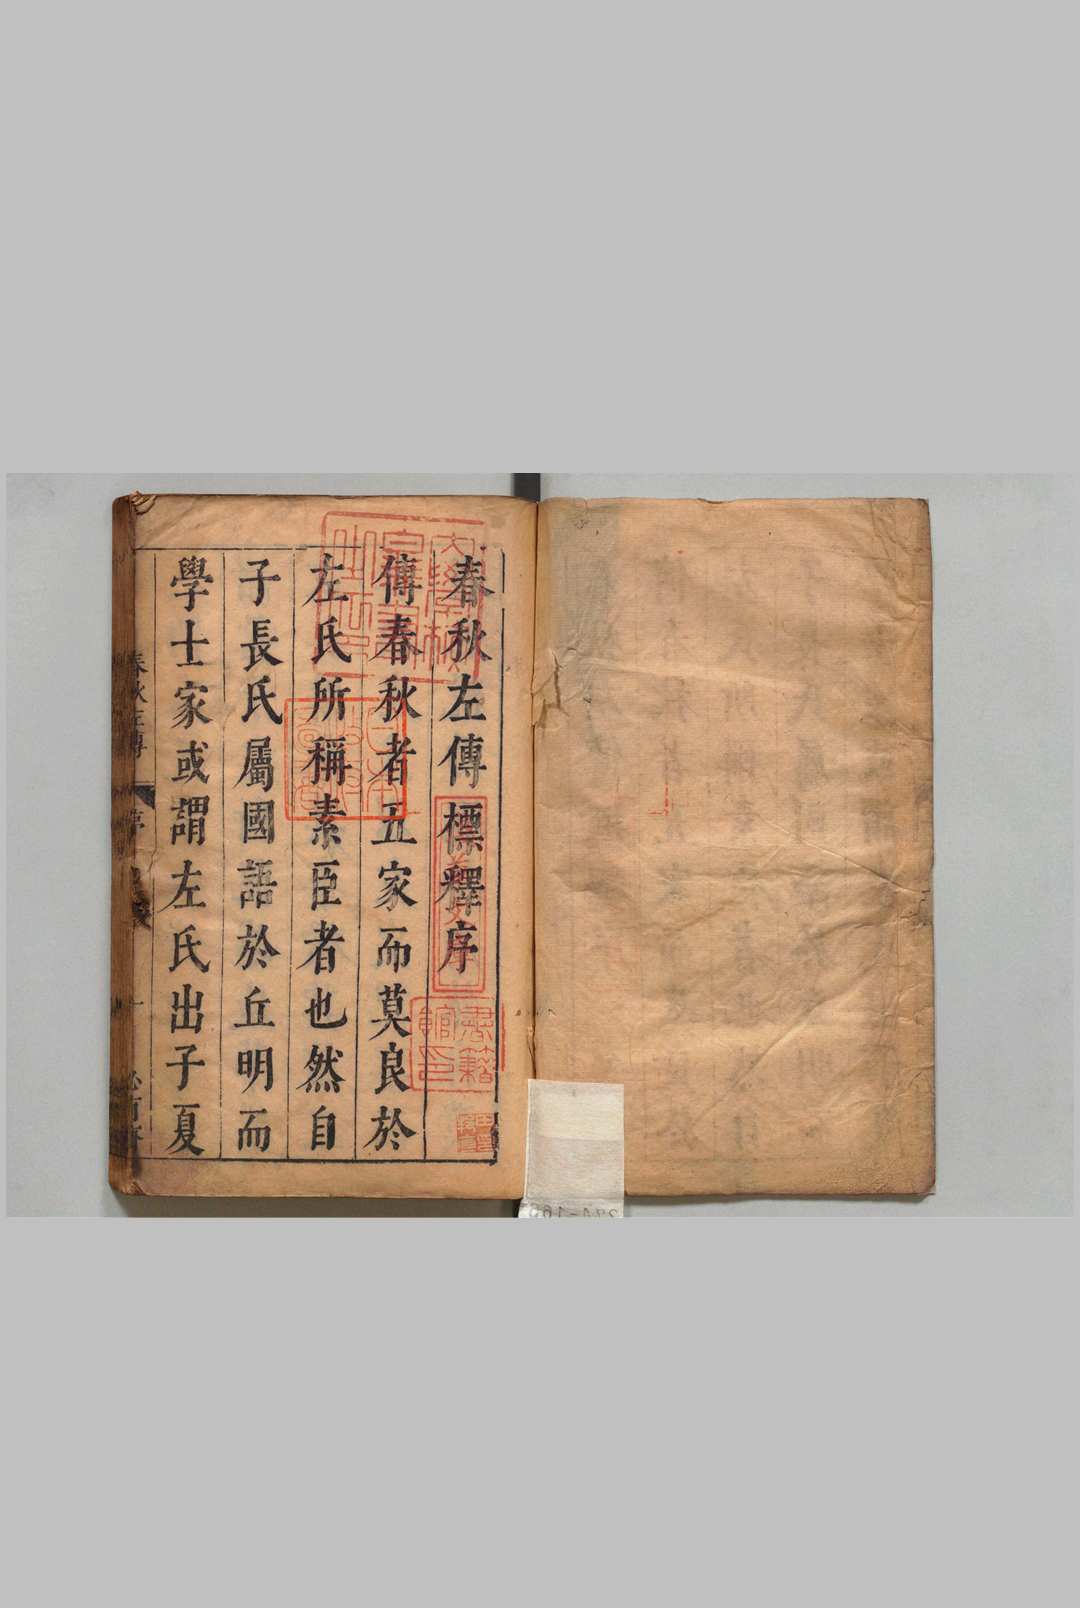 春秋左傳標釋序
傳春秋者五家而莫良於
左氏所稱素臣者也然自
子長氏屬國語於丘明而
學士家或謂左氏出子夏
春秋左傳
序
一
書籍
館印